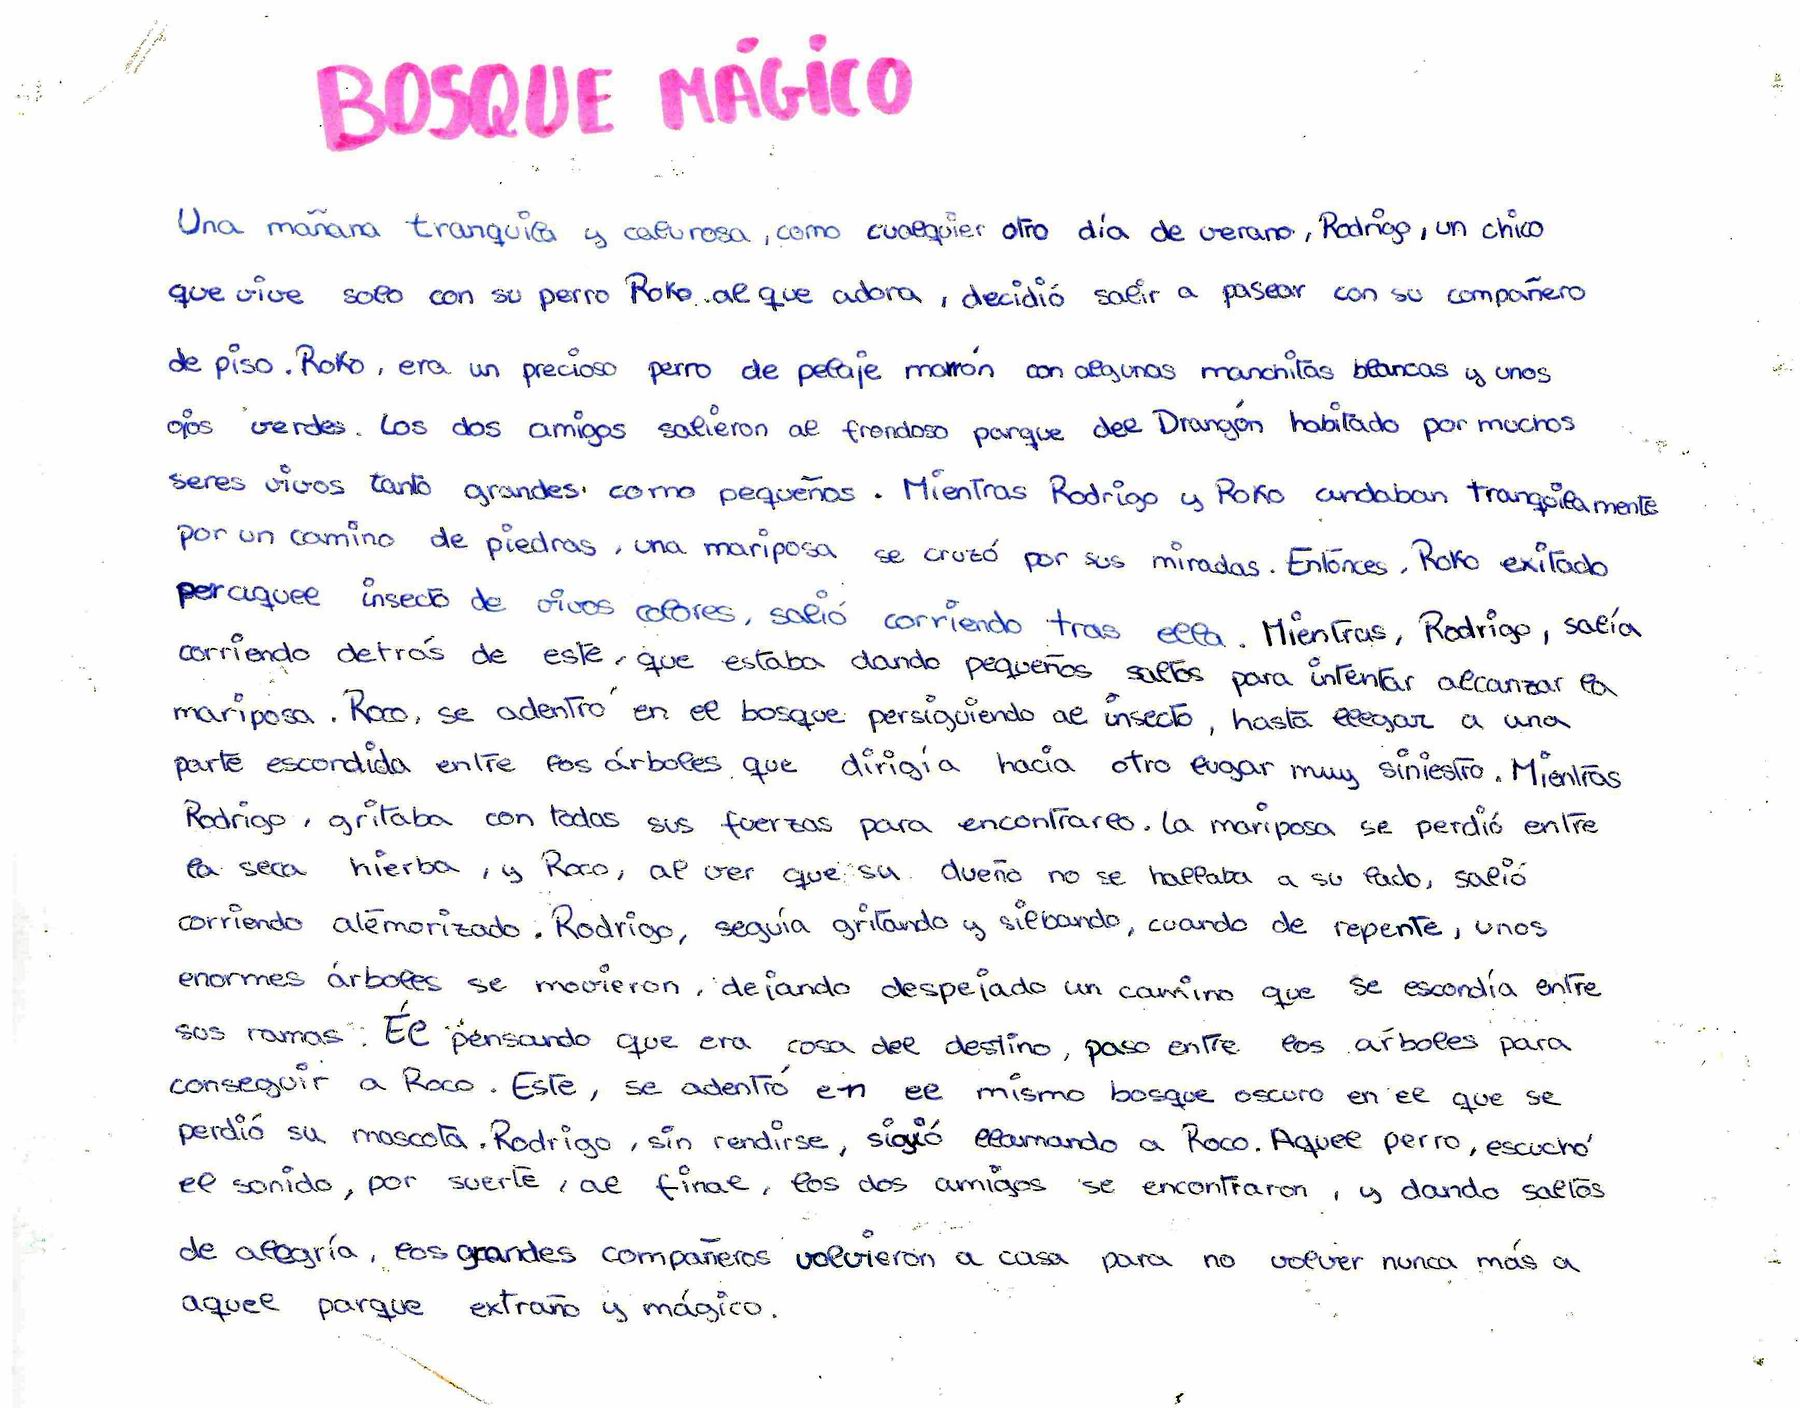 BOSQUE MÁGICO
Una mañana tranquila y calurosa, como cualquier otro día de verano, Rodrigo, un chico
que vive solo con su perro Roko al que adora, decidió salir a pasear con su compañero
de piso. Roko, era un precioso perro de pelaje marrón con algunas manchitas blancas y unos
ojos verdes. Los dos amigos salieron al frondoso parque del Drangón habitado por muchos
seres vivos tanto grandes como pequeños. Mientras Rodrigo y Roko andaban tranquilamente
por un camino de piedras, una mariposa se cruzó por sus miradas. Entonces, Roko exitado
por aquel insecto de vivos colores, salió corriendo tras ella. Mientras, Rodrigo, salía
corriendo detrás de este, que estaba dando pequeños saltos para intentar alcanzar la
mariposa. Roco, se adentró en el bosque persiguiendo al insecto, hasta llegar a una
parte escondida entre los árboles que dirigía hacia otro lugar muy siniestro. Mientras
Rodrigo, gritaba con todas sus fuerzas para encontrarlo. La mariposa se perdió entre
la seca hierba, y Roco, al ver que su dueño no se hallaba a su lado, salió
corriendo atemorizado. Rodrigo, seguía gritando y silbando, cuando de repente, unos
enormes árboles se movieron, dejando despejado un camino que se escondía entre
sus ramas. Él pensando que era cosa del destino, paso entre los árboles para
conseguir a Roco. Este, se adentró en el mismo bosque oscuro en el que se
perdió su mascota. Rodrigo, sin rendirse, siguió llamando a Roco. Aquel perro, escuchó
el sonido, por suerte, al final, los dos amigos se encontraron, y dando saltos
de alegría, los grandes compañeros volvieron a casa para no volver nunca más a
aquel parque extraño y mágico.